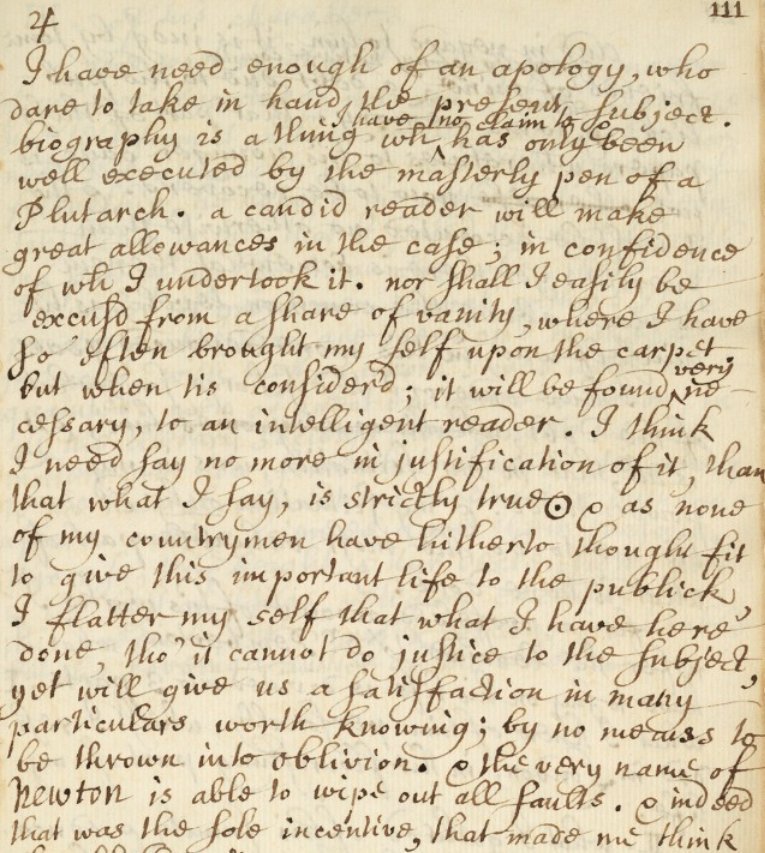 4 111
I have need enough of an apology, who
dare to take in hand, the present subject.
I have no claim to &
biography is a thing wh. has only been
well executed by the masterly pen of a
Plutarch. a candid reader will make
great allowances in the case; in confidence
of wh. I undertook it. nor shall I easily be
excus'd from a share of vanity, where I have
so often brought my self upon the carpet.
very
but when tis considerd; it will be found ne-
cessary, to an intelligent reader. I think
I need say no more in justification of it, than
that what I say, is strictly true ⊙ & as none
of my countrymen have hitherto thought fit
to give this important life to the publick,
I flatter my self that what I have here
done, tho' it cannot do justice to the subject,
yet will give us a satisfaction in many
particulars worth knowing; by no means to
be thrown into oblivion. & the very name of
Newton is able to wipe out all faults. & indeed
that was the sole incentive, that made me think